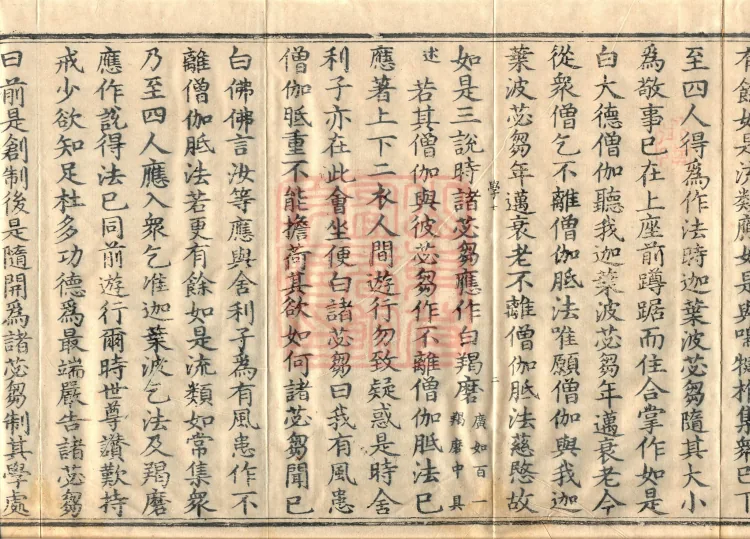 有餘如是流類應如是與鳴揵椎集衆已下
至四人得爲作法時迦葉波苾芻隨其大小
爲敬事已在上座前蹲踞而住合掌作如是
白大德僧伽聽我迦葉波苾芻年邁衰老今
從衆僧乞不離僧伽胝法唯願僧伽與我迦
葉波苾芻年邁衰老不離僧伽胝法慈愍故
學 二
如是三說時諸苾芻應作白羯磨廣如百一羯磨中具
述若其僧伽與彼苾芻作不離僧伽胝法已
應著上下二衣人間遊行勿致疑惑是時舍
利子亦在此會坐便白諸苾芻曰我有風患
僧伽胝重不能擔荷其欲如何諸苾芻聞已
白佛佛言汝等應與舍利子爲有風患作不
離僧伽胝法若更有餘如是流類如常集衆
乃至四人應入衆乞准迦葉波乞法及羯磨
應作說得法已同前遊行爾時世尊讚歎持
戒少欲知足杜多功德爲最端嚴告諸苾芻
曰前是創制後是隨開爲諸苾芻制其學處